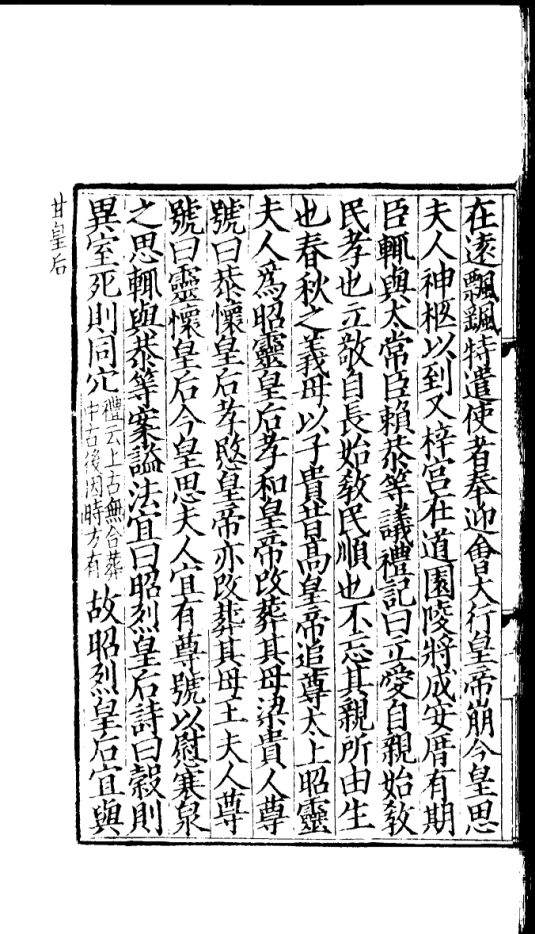 在遠飄颻特遣使者奉迎會大行皇帝崩今皇思
夫人神柩以到又梓宮在道園陵將成安厝有期
臣輒與太常臣賴恭等議禮記曰立愛自親始敎
民孝也立敬自長始敎民順也不忘其親所由生
也春秋之義母以子貴昔高皇帝追尊太上昭靈
夫人爲昭靈皇后孝和皇帝改葬其母梁貴人尊
號曰恭懷皇后孝愍皇帝亦改葬其母王夫人尊
號曰靈懷皇后今皇思夫人宜有尊號以慰寒泉
之思輒與恭等案謚法宜曰昭烈皇后詩曰穀則
異室死則同穴
禮云上古無合葬
中古後因時方有
故昭烈皇后宜與
甘皇后